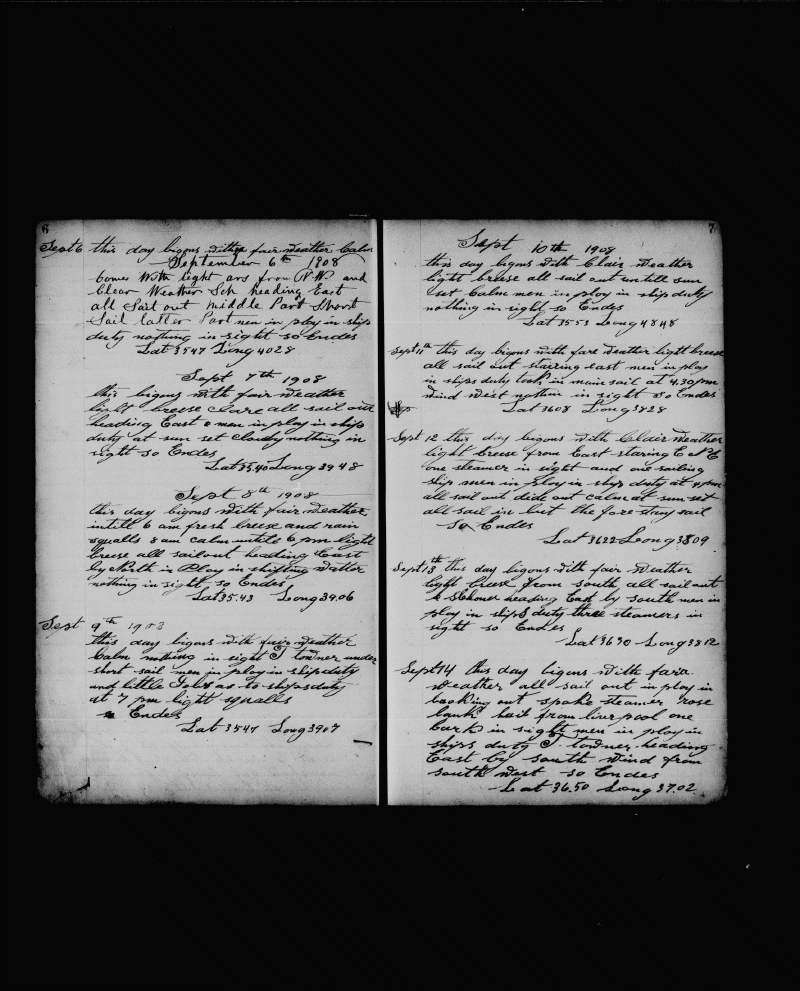 6
Sept 6 this day bigons with fair weather Calm
September 6th 1908
Comes With light ars from N.W. and
Clear Weather Sch heading East
all Sail out Middle Part Short
Sail latter Part men in ploy in ship
duty nothing in sight so Endes
Lat 3547 Long 4028
Sept 7th 1908
this bigons with fair weather
light breese clare all sail out
heading East men in ploy in ship
duty at sun set cloudy nothing in
sight so Endes
Lat 35.40 Long 39 48
Sept 8th 1908
this day bigons with fair weather
intill 6 am fresh breex and rain
squalls 8 am calm untile 6 pm light
breese all sail out heading East
by North in Ploy in shifting Watter
nothing in sight so Endes
Lat 35.43 Long 39.06
Sept 9th 1908
this day bigons with fair weather
Calm nothing in sight J towner under
short sail men in ploy in ship duty
and little Jobs as to ships duty
at 7 pm light squalls
Endes
Lat 3547 Long 3907
7
Sept 10th 1908
this day bigons with Clair Weather
light breese all sail out untill sun
set Calm men in ploy in ship duty
nothing in sight so Endes
Lat 3553 Long 4848
Sept 11th this day bigons with fare weather light breese
all sail out stairing east men in ploy
in ships duty took in main sail at 4.30 pm
wind West nothin in sight so Endes
Lat 3608 Long 3828
Sept 12 this day begons with Clair Weather
light breese from East staring E
one steamer in sight and one sailing
ship men in ploy in ship duty at 4 pm
all sail out dide out calm at sun set
all sail in but the fore stay sail
so Endes
Lat 3622 Long 3809
Sept 13th this day bigons with fair Weather
light breese from south all sail out
schoner heading East by south men in
ploy in ships duty three steamers in
sight so Endes
Lat 3630 Long 3812
Sept 14 this day bigons with fara
Weather all sail out in ploy in
looking out spoke steamer rose
bank hail from liverpool one
bark in sight men in ploy in
ships duty J towner heading
East by south wind from
south west so Endes
Lat 36.50 Long 37.02